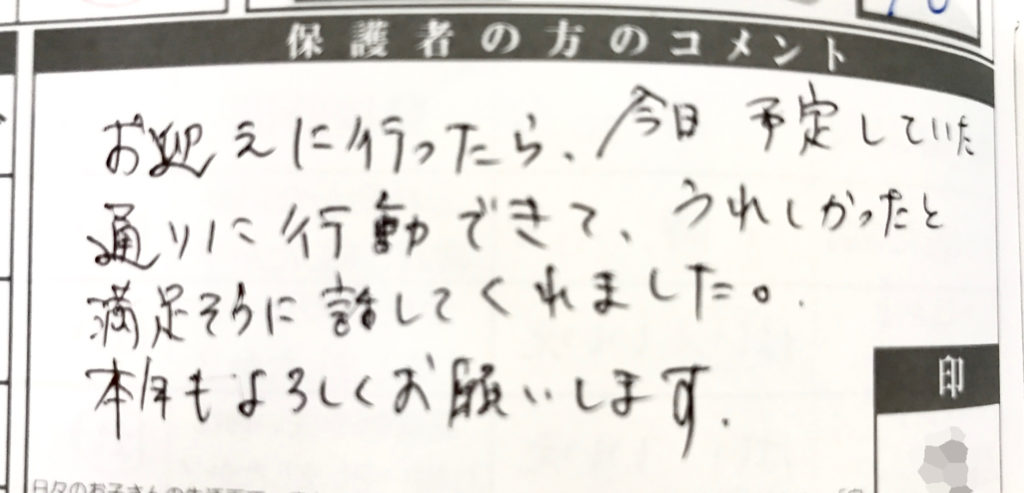 保護者の方のコメント
お迎えに行ったら、今日予定していた
通りに行動できて、うれしかったと
満足そうに話してくれました。
本年もよろしくお願いします.
印